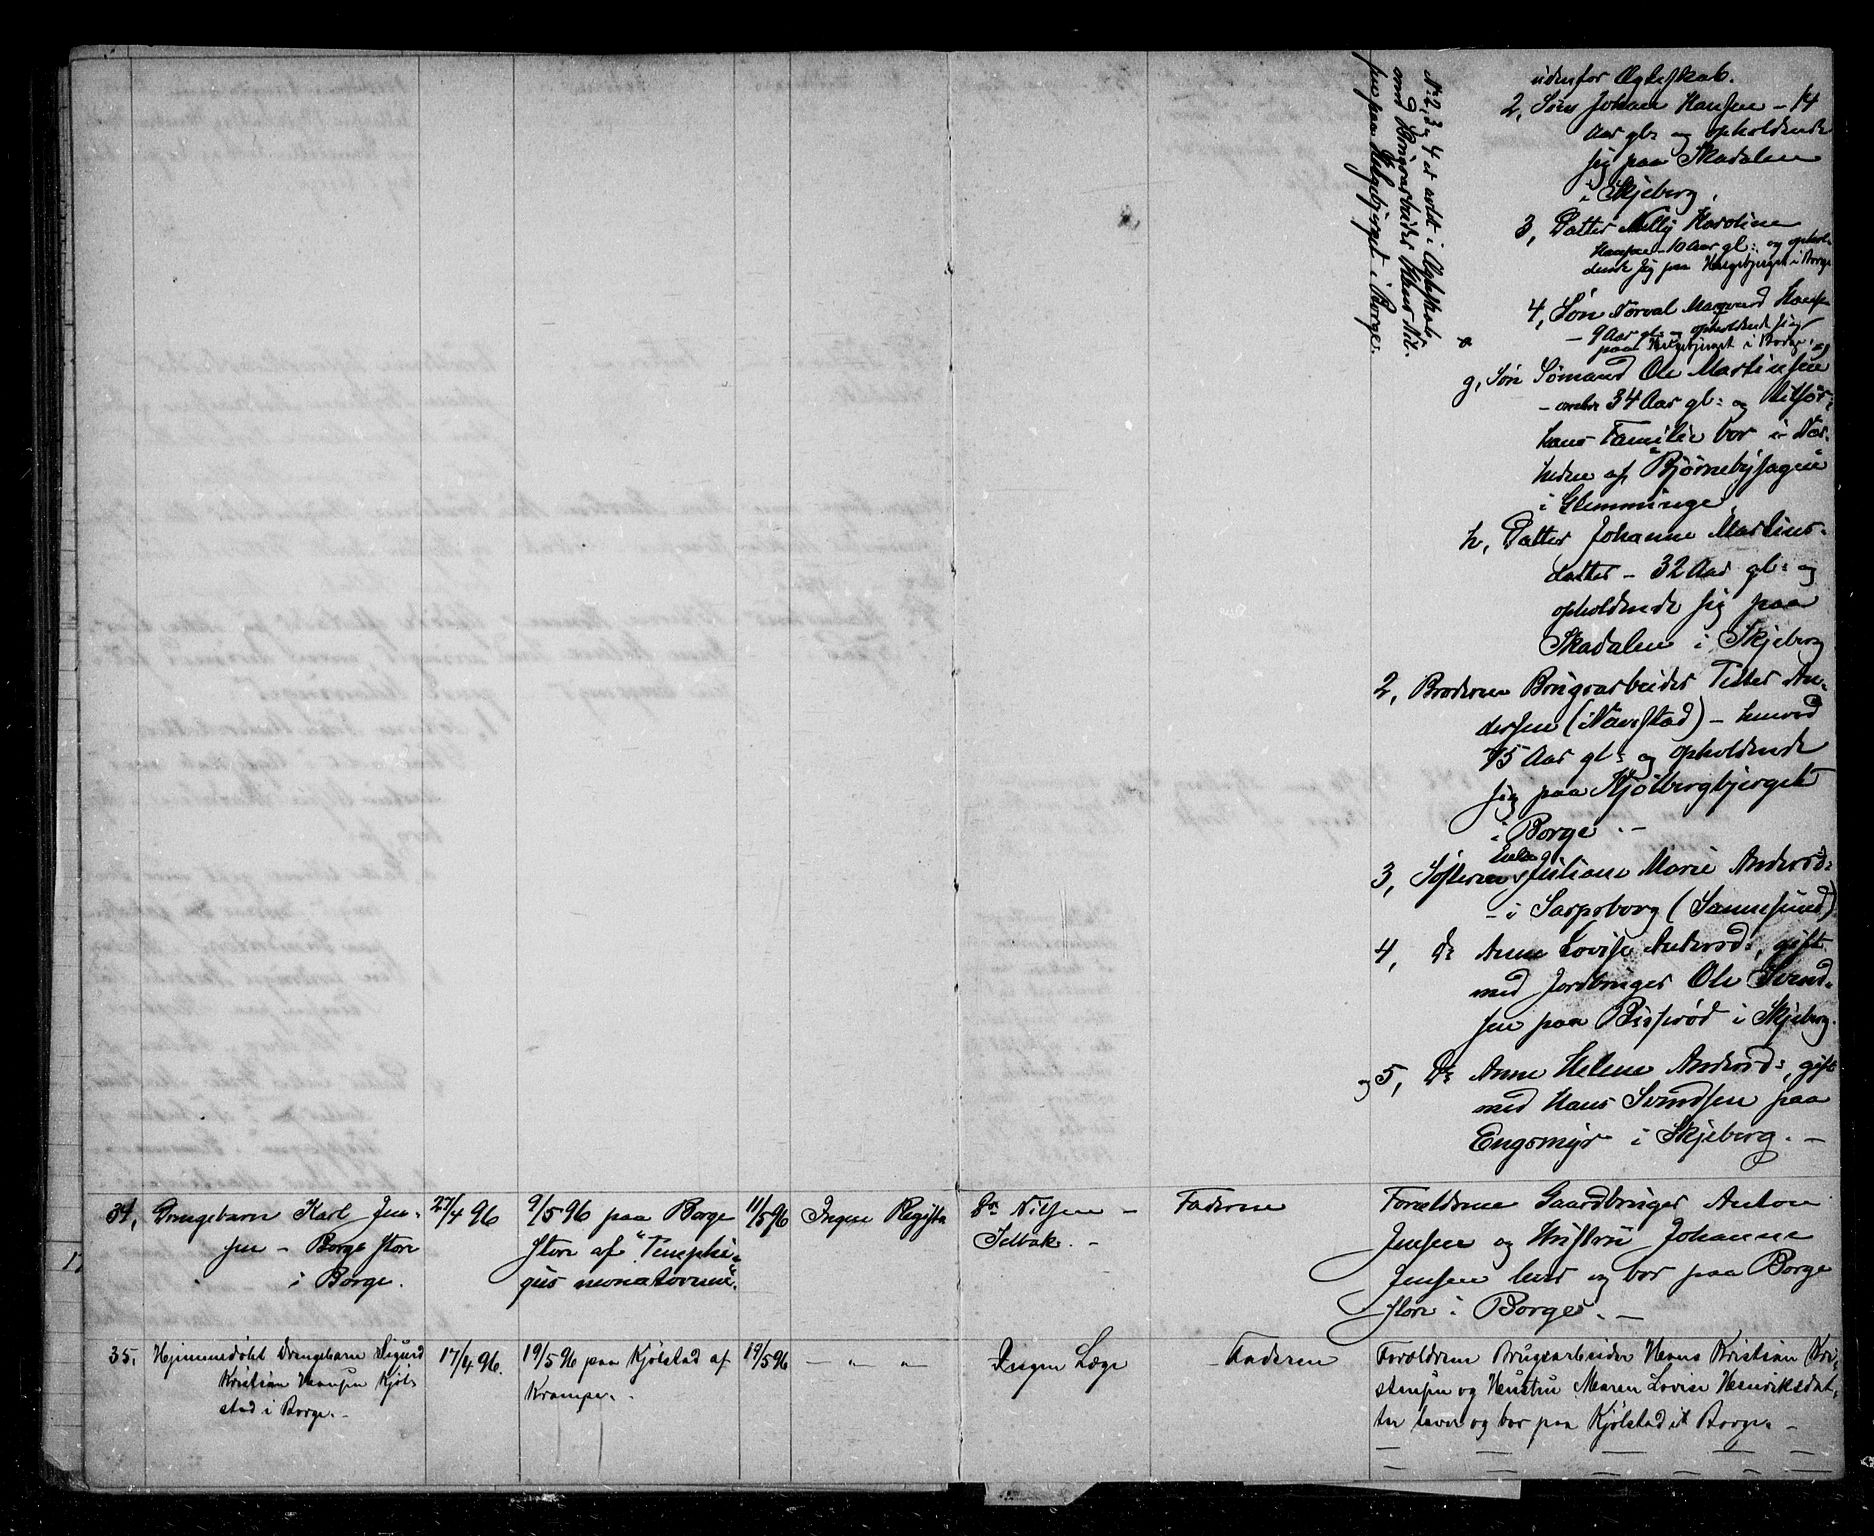 udenfor Ægteskab.
2, Søn Johan Hansen – 14
Aar gl: og opholdende
sig paa Skadalen
i Skjeberg,
3, Datter Nelly Karoline
Hansen – 10 Aar gl: og ophol-
dende sig paa Helgebjerget i Borge
4, Søn Norval Hansen
– 9 Aar gl: og opholdende sig
paa Helgebjerget i Borge, og
No 2, 3 og 4 er avlet i Ægteskab
med Brugsarbeider Hans Nil-
sen paa Helgebjerget i Borge.
g, Søn Sømand Ole Martinsen
– 34 Aar gl: og
hans Familie bor i Nær-
heden af "Bjørnebysagen"
i Glemminge
h, Datter Johanne Martins-
datter – 32 Aar gl: og
opholdende sig paa
Skadalen i Skjeberg
2, Broderen Brugsarbeider Petter An-
dersen (i Navestad) –
75 Aar gl: og opholdende
sig paa Kjølbergbjerget
i Borge. –
3, Søsteren Enke Juliane Marie Andersd:
– i Sarpsborg (Sannesund)
4, Do Anne Lovise Andersd:, gift
med Jordbruger Ole Svend-
sen paa Bisserød i Skjeberg.
og 5, Do Anne Helene Andersd:, gift
med Hans Svendsen paa
Engsmyr i Skjeberg. –
34, Drengebarn Karl Jen-
sen – Borge store
i Borge.
27/4 96
9/5 96 paa Borge
store af "Pemphi-
gus neonatorum".
11/5 96
Ingen Registr.
Dr. Nilsen –
Selbak. –
Faderen
Forældrene Gaardbruger Anton
Jensen og Hustru Johanne
Jensen lever og bor paa Borge
store i Borge. –
35, Hjemmedøbt Drengebarn Sigurd
Kristian Hansen Kjøl-
stad i Borge. –
17/4 96.
19/5 96 paa Kjølstad af
Krampe. –
19/5 96
– " – " –
Ingen Læge
– Faderen
Forældrene Brugsarbeider Hans Kristian Kri-
stensen og Hustru Maren Lovise Henriksdat-
ter lever og bor paa Kjølstad i Borge. –